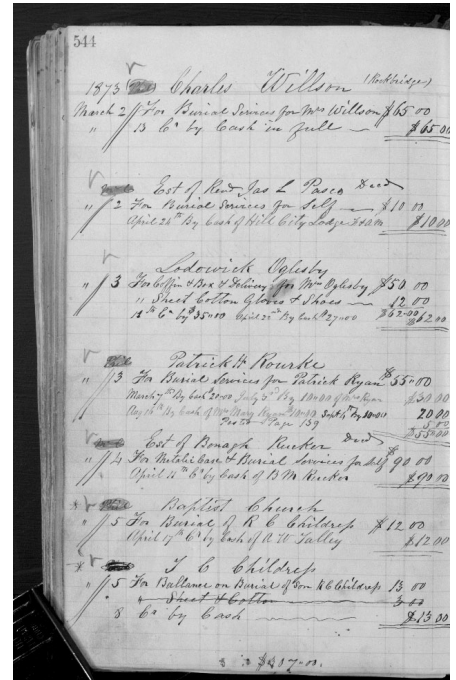 544
1873 Charles Willson (Rockbridge)
March 2 For Burial Services for Mrs Willson $65 00
" 13 Cr by Cash in full $65 00
Est of Revd Jas L Pasco Decd
" 2 For Burial Services for Self $10 00
April 24th By Cash of Hill City Lodge $10 00
Lodowick Oglesby
" 3 For Coffin & Box & Delivery for Mrs Oglesby $50 00
" Sheet Cotton Gloves & Shoes 12 00
Cr by $35=00 April 22d By Cash 27=00 $62=00 $62 00
Patrick H Rourke
" 3 For Burial Services for Patrick Ryan $55=00
March 7th By Cash 20=00 July 5th By 10=00 of Mrs Ryan $30 00
Aug 16th By Cash of Mrs Mary Ryan 10=00 Sept 4th by 10=00 20 00
Page 139 5 00
$55=00
Est of Bonagh Rucker Decd
" 4 For Metalic Case & Burial Services for Self $90 00
" April 11th Cr by Cash of B M Rucker $90 00
Baptist Church
" 5 For Burial of R C Childress $12 00
April 17th Cr by Cash of A H Talley $12 00
T C Childress
" 5 For Ballance on Burial of Son R C Childress 13 00
" Sheet & Cotton 3 00
8 Cr by Cash $13 00